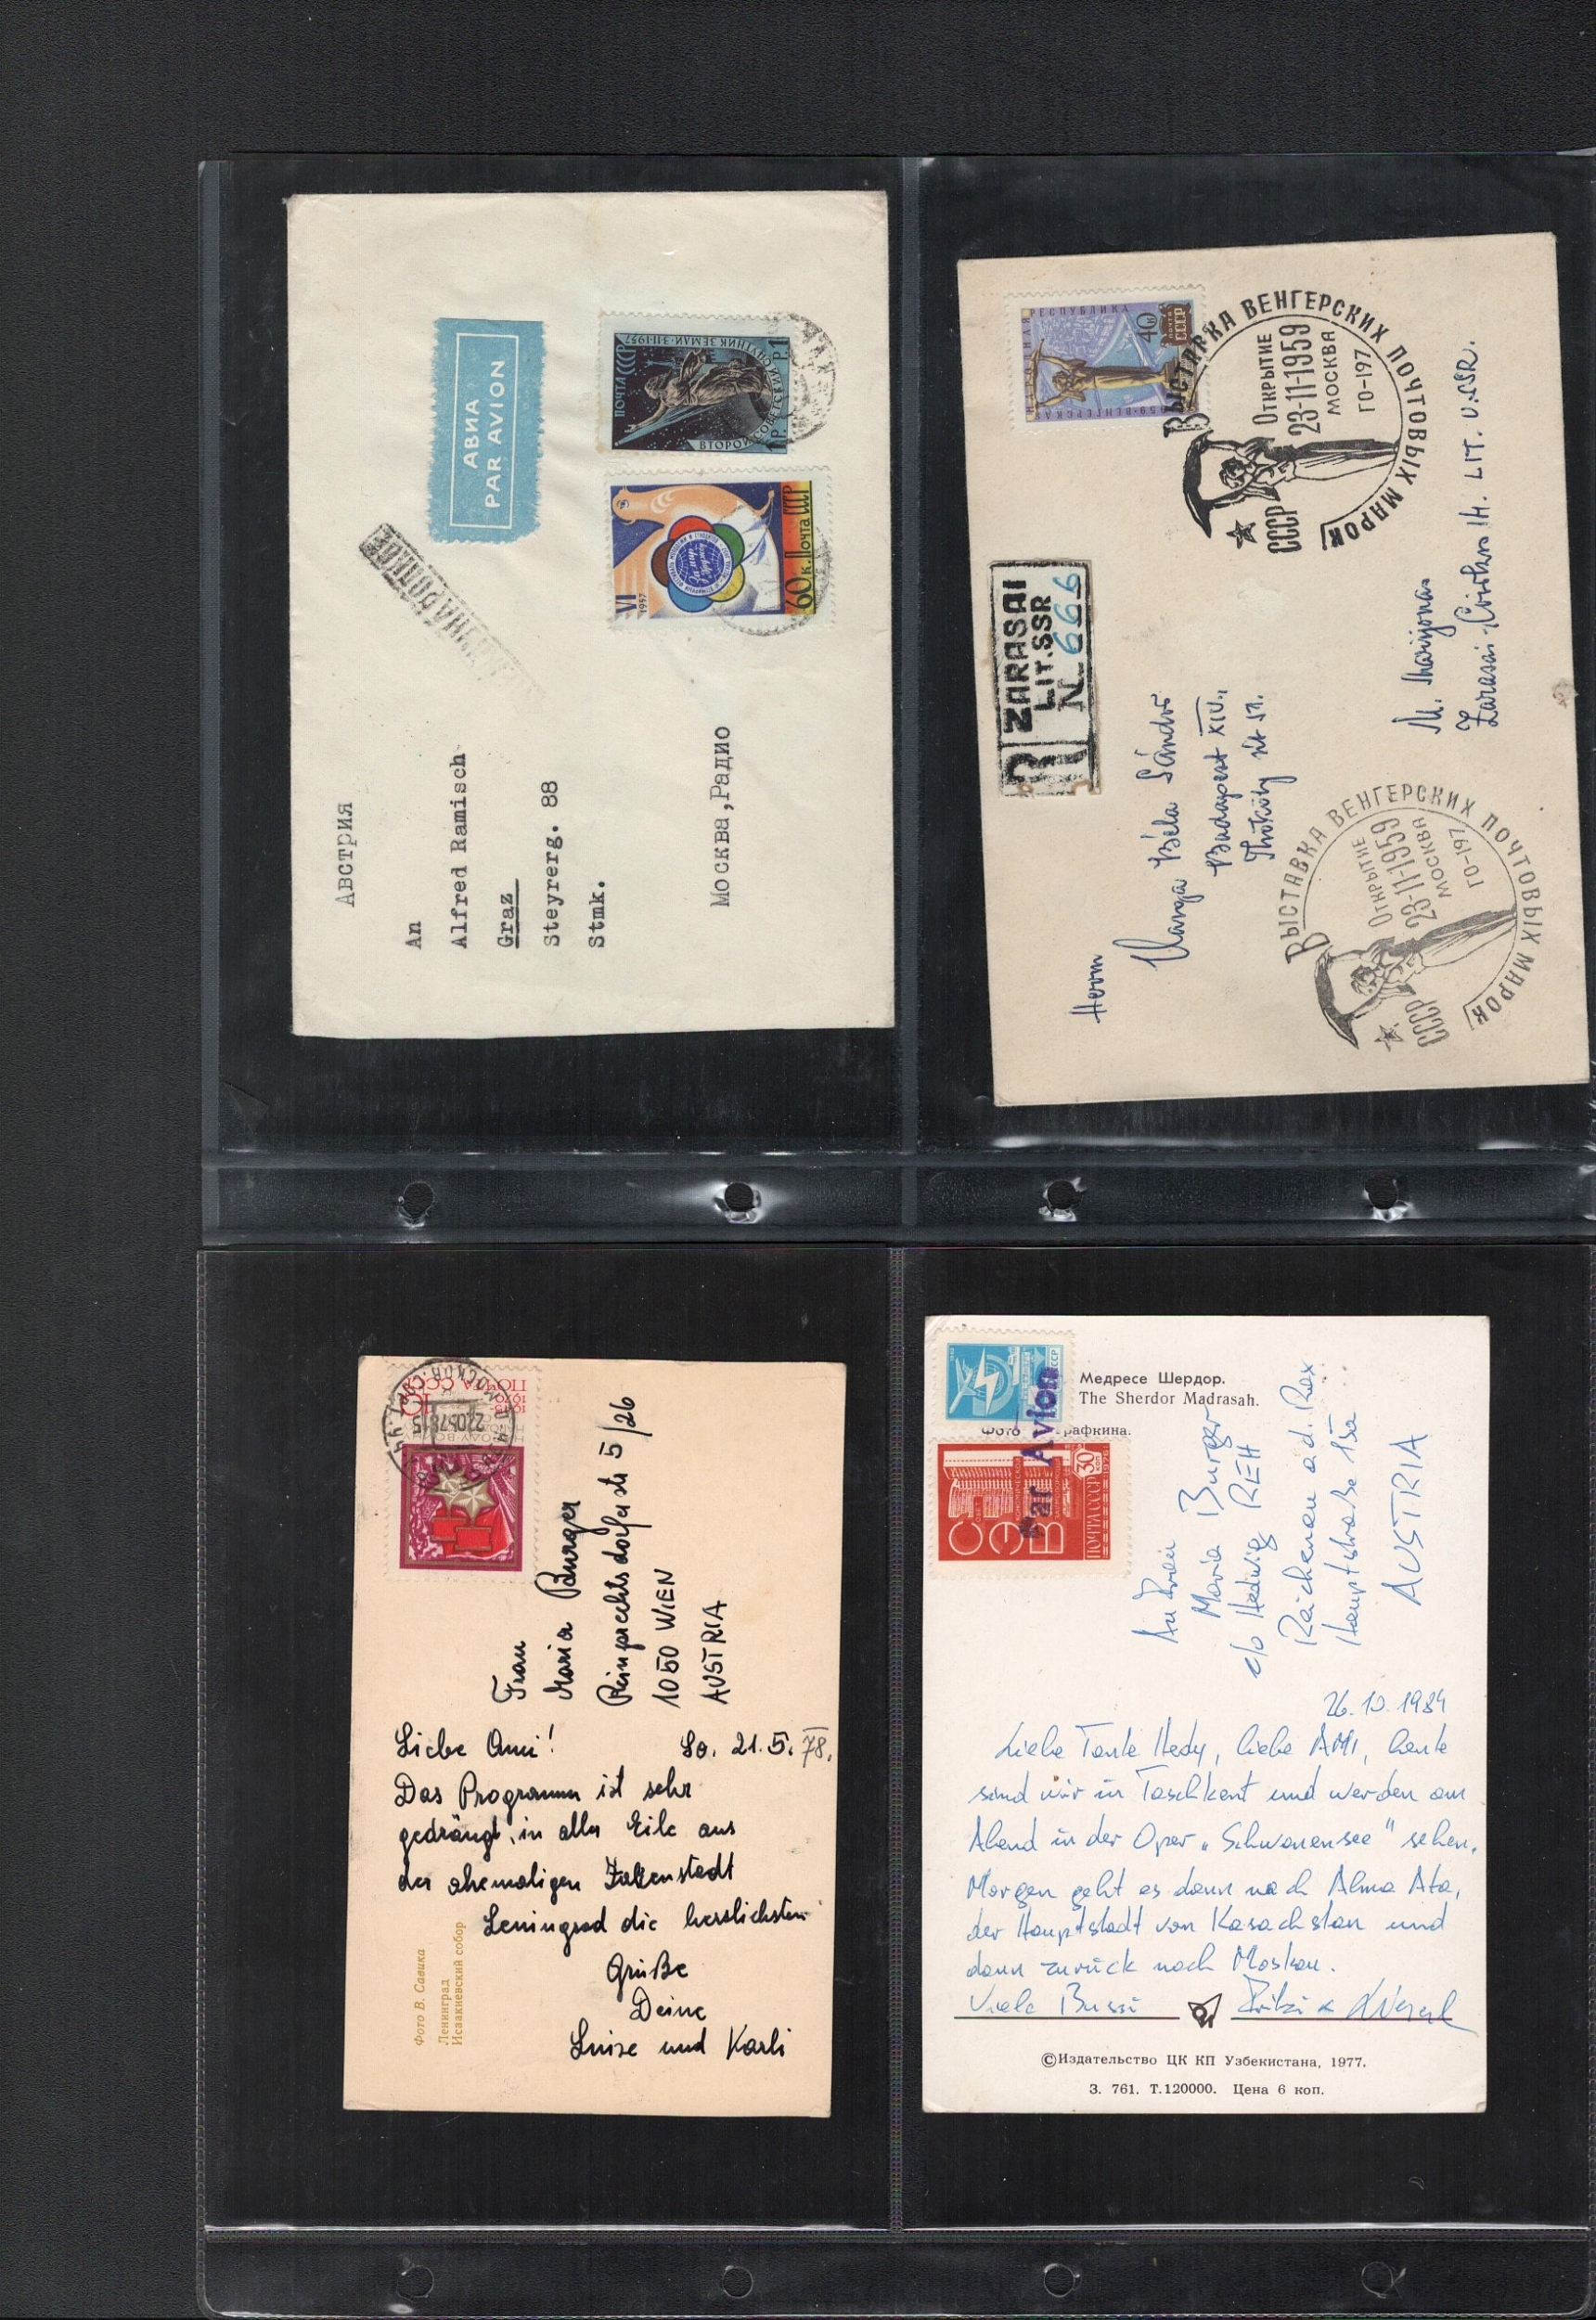 АВИА
PAR AVION
МЕЖДУНАРОДНОЕ
ПОЧТА СССР
ВТОРОЙ СОВЕТСКИЙ СПУТНИК ЗЕМЛИ·3·11·1957
Р.1
VI
1957
За мир и дружбу
60 к. ПОЧТА СССР
Австрия
An
Alfred Ramisch
Graz
Steyrerg. 88
Stmk.
Москва,Радио
НАРОДНАЯ РЕСПУБЛИКА
ВЕНГЕРСКАЯ
40к
ПОЧТА СССР
ВЫСТАВКА ВЕНГЕРСКИХ ПОЧТОВЫХ МАРОК
ОТКРЫТИЕ
23-11-1959
МОСКВА
ГО-197
СССР
R ZARASAI
LIT.SSR
N 666
Herrn
Varga Béla Sándor
Budapest XIV.,
Thököly út 51.
M. Marijonas
LIT. U.SSR.
ВЫСТАВКА ВЕНГЕРСКИХ ПОЧТОВЫХ МАРОК
ОТКРЫТИЕ
23-11-1959
МОСКВА
ГО-197
СССР
ПОЧТА СССР
10
Frau
Maria Burger
5/26
1050 WIEN
AUSTRIA
Liebe Ami! So. 21.5.78.
Das Programm ist sehr
gedrängt, in aller Eile aus
der ehemaligen Zarenstadt
Leningrad die herzlichsten
Grüße
Deine
Luise und Karli
Фото В. Савика
Ленинград
Исаакиевский собор
Медресе Шердор.
The Sherdor Madrasah.
Фото рафкина.
Par Avion
СЭВ
30 коп
ПОЧТА СССР
1976
An Frau
Maria Burger
c/o Hedwig REH
Reichenau a. d. Rax
Hauptstraße 15a
AUSTRIA
26.10.1984
Liebe Tante Hedy, liebe AMI, heute
sind wir in Taschkent und werden am
Abend in der Oper „Schwanensee" sehen.
Morgen geht es dann nach Alma Ata,
der Hauptstadt von Kasachstan und
dann zurück nach Moskau.
Viele Bussi
©Издательство ЦК КП Узбекистана, 1977.
З. 761. Т.120000. Цена 6 коп.